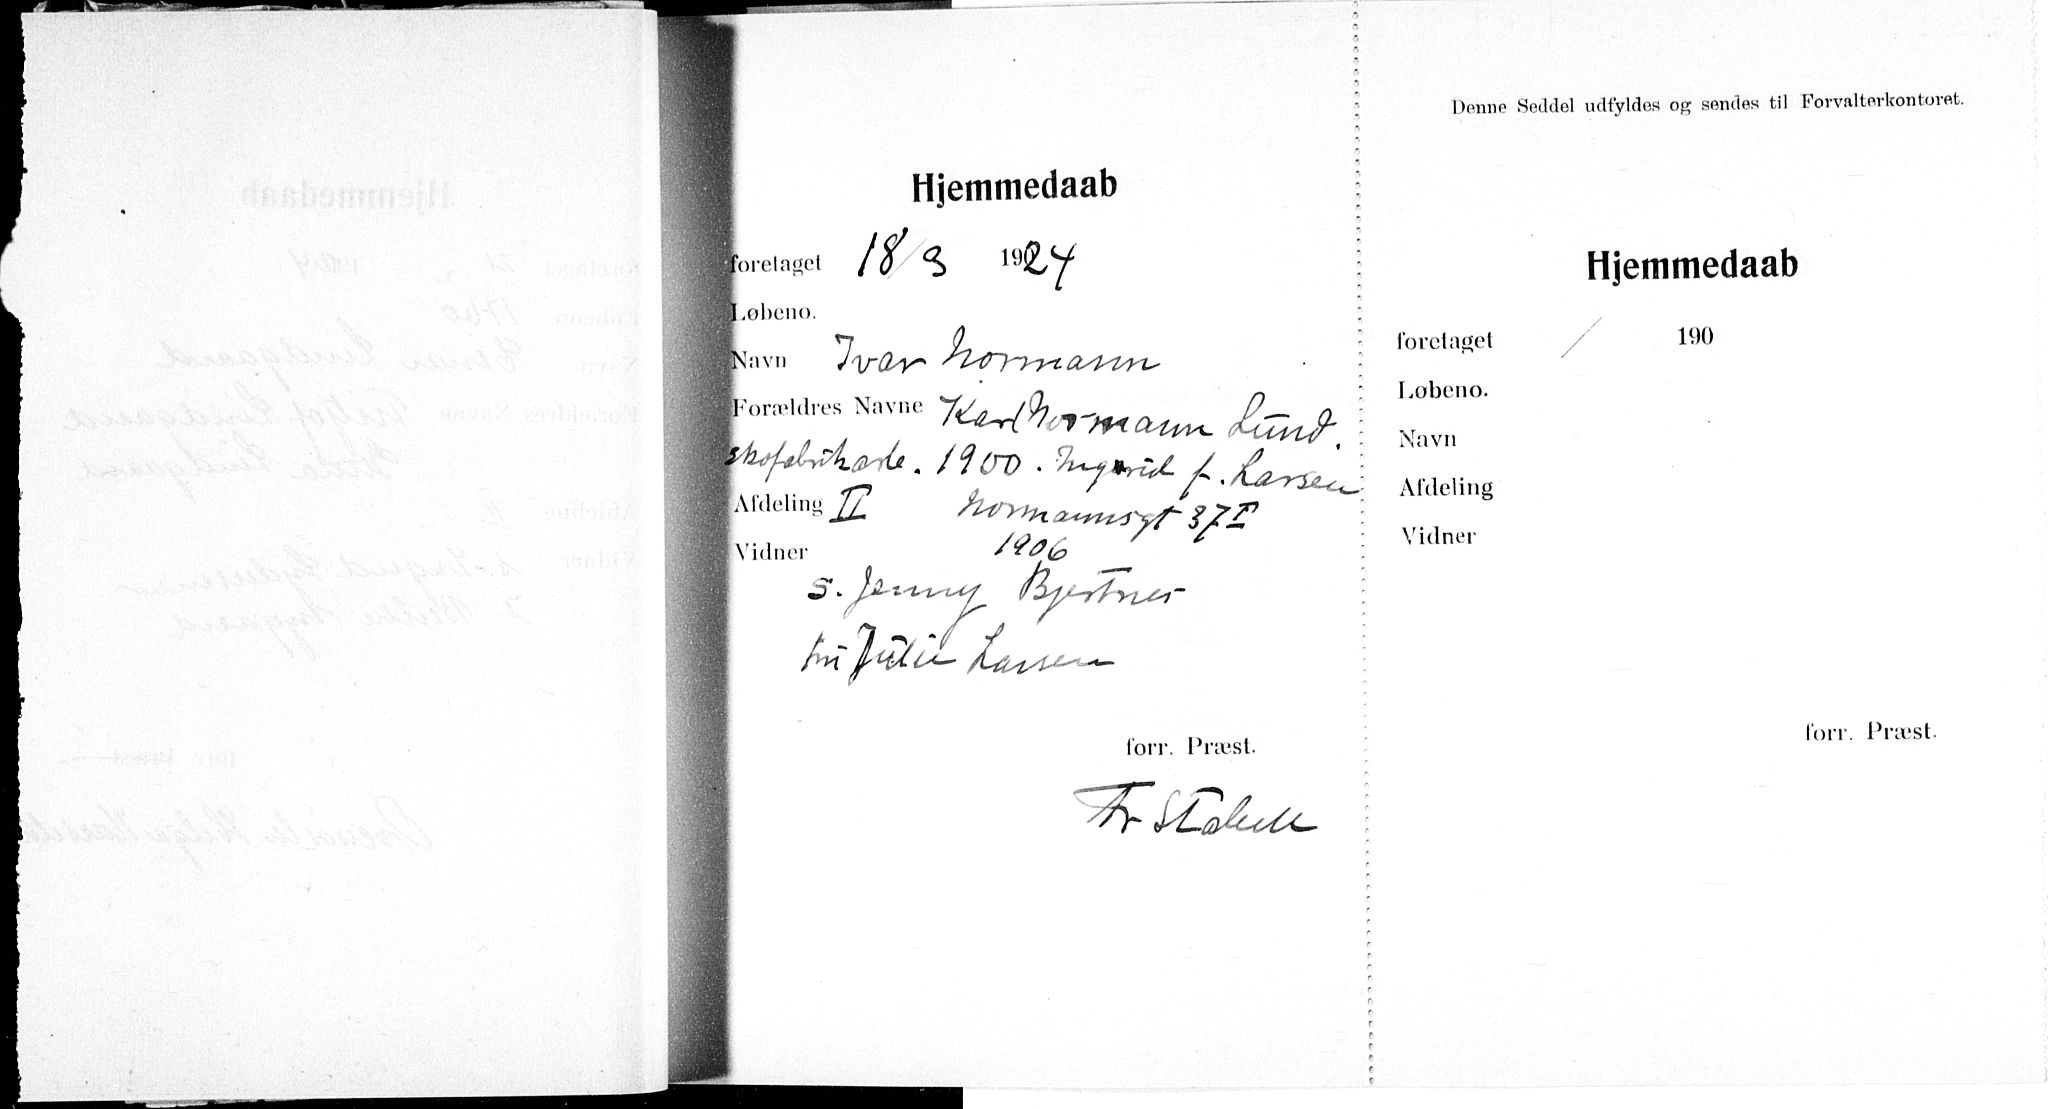 Hjemmedaab
foretaget 18/3 1924
Løbeno.
Navn Ivar Normann
Forældres Navne Karl Normann Lund.
skofabrikarb. 1900. Ingrid f. Larsen
Afdeling II Normannsgt 37 I
Vidner 1906
s. Jenny Bjertnes
fru Julie Larsen
forr. Præst.
Fr Stabell
Denne Seddel udfyldes og sendes til Forvalterkontoret.
Hjemmedaab
foretaget / 190
Løbeno.
Navn
Afdeling
Vidner
forr. Præst.